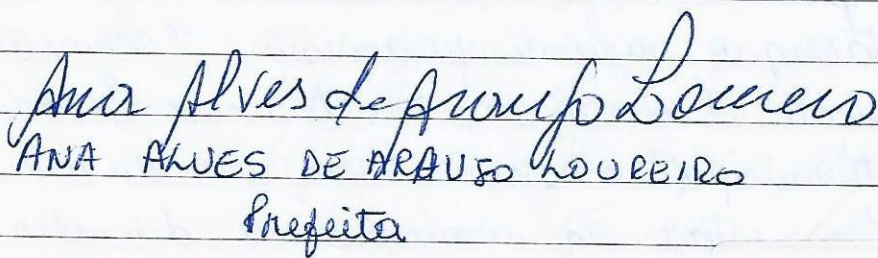 Ana Alves de Araujo Loureiro
ANA ALVES DE ARAUJO LOUREIRO
Prefeita